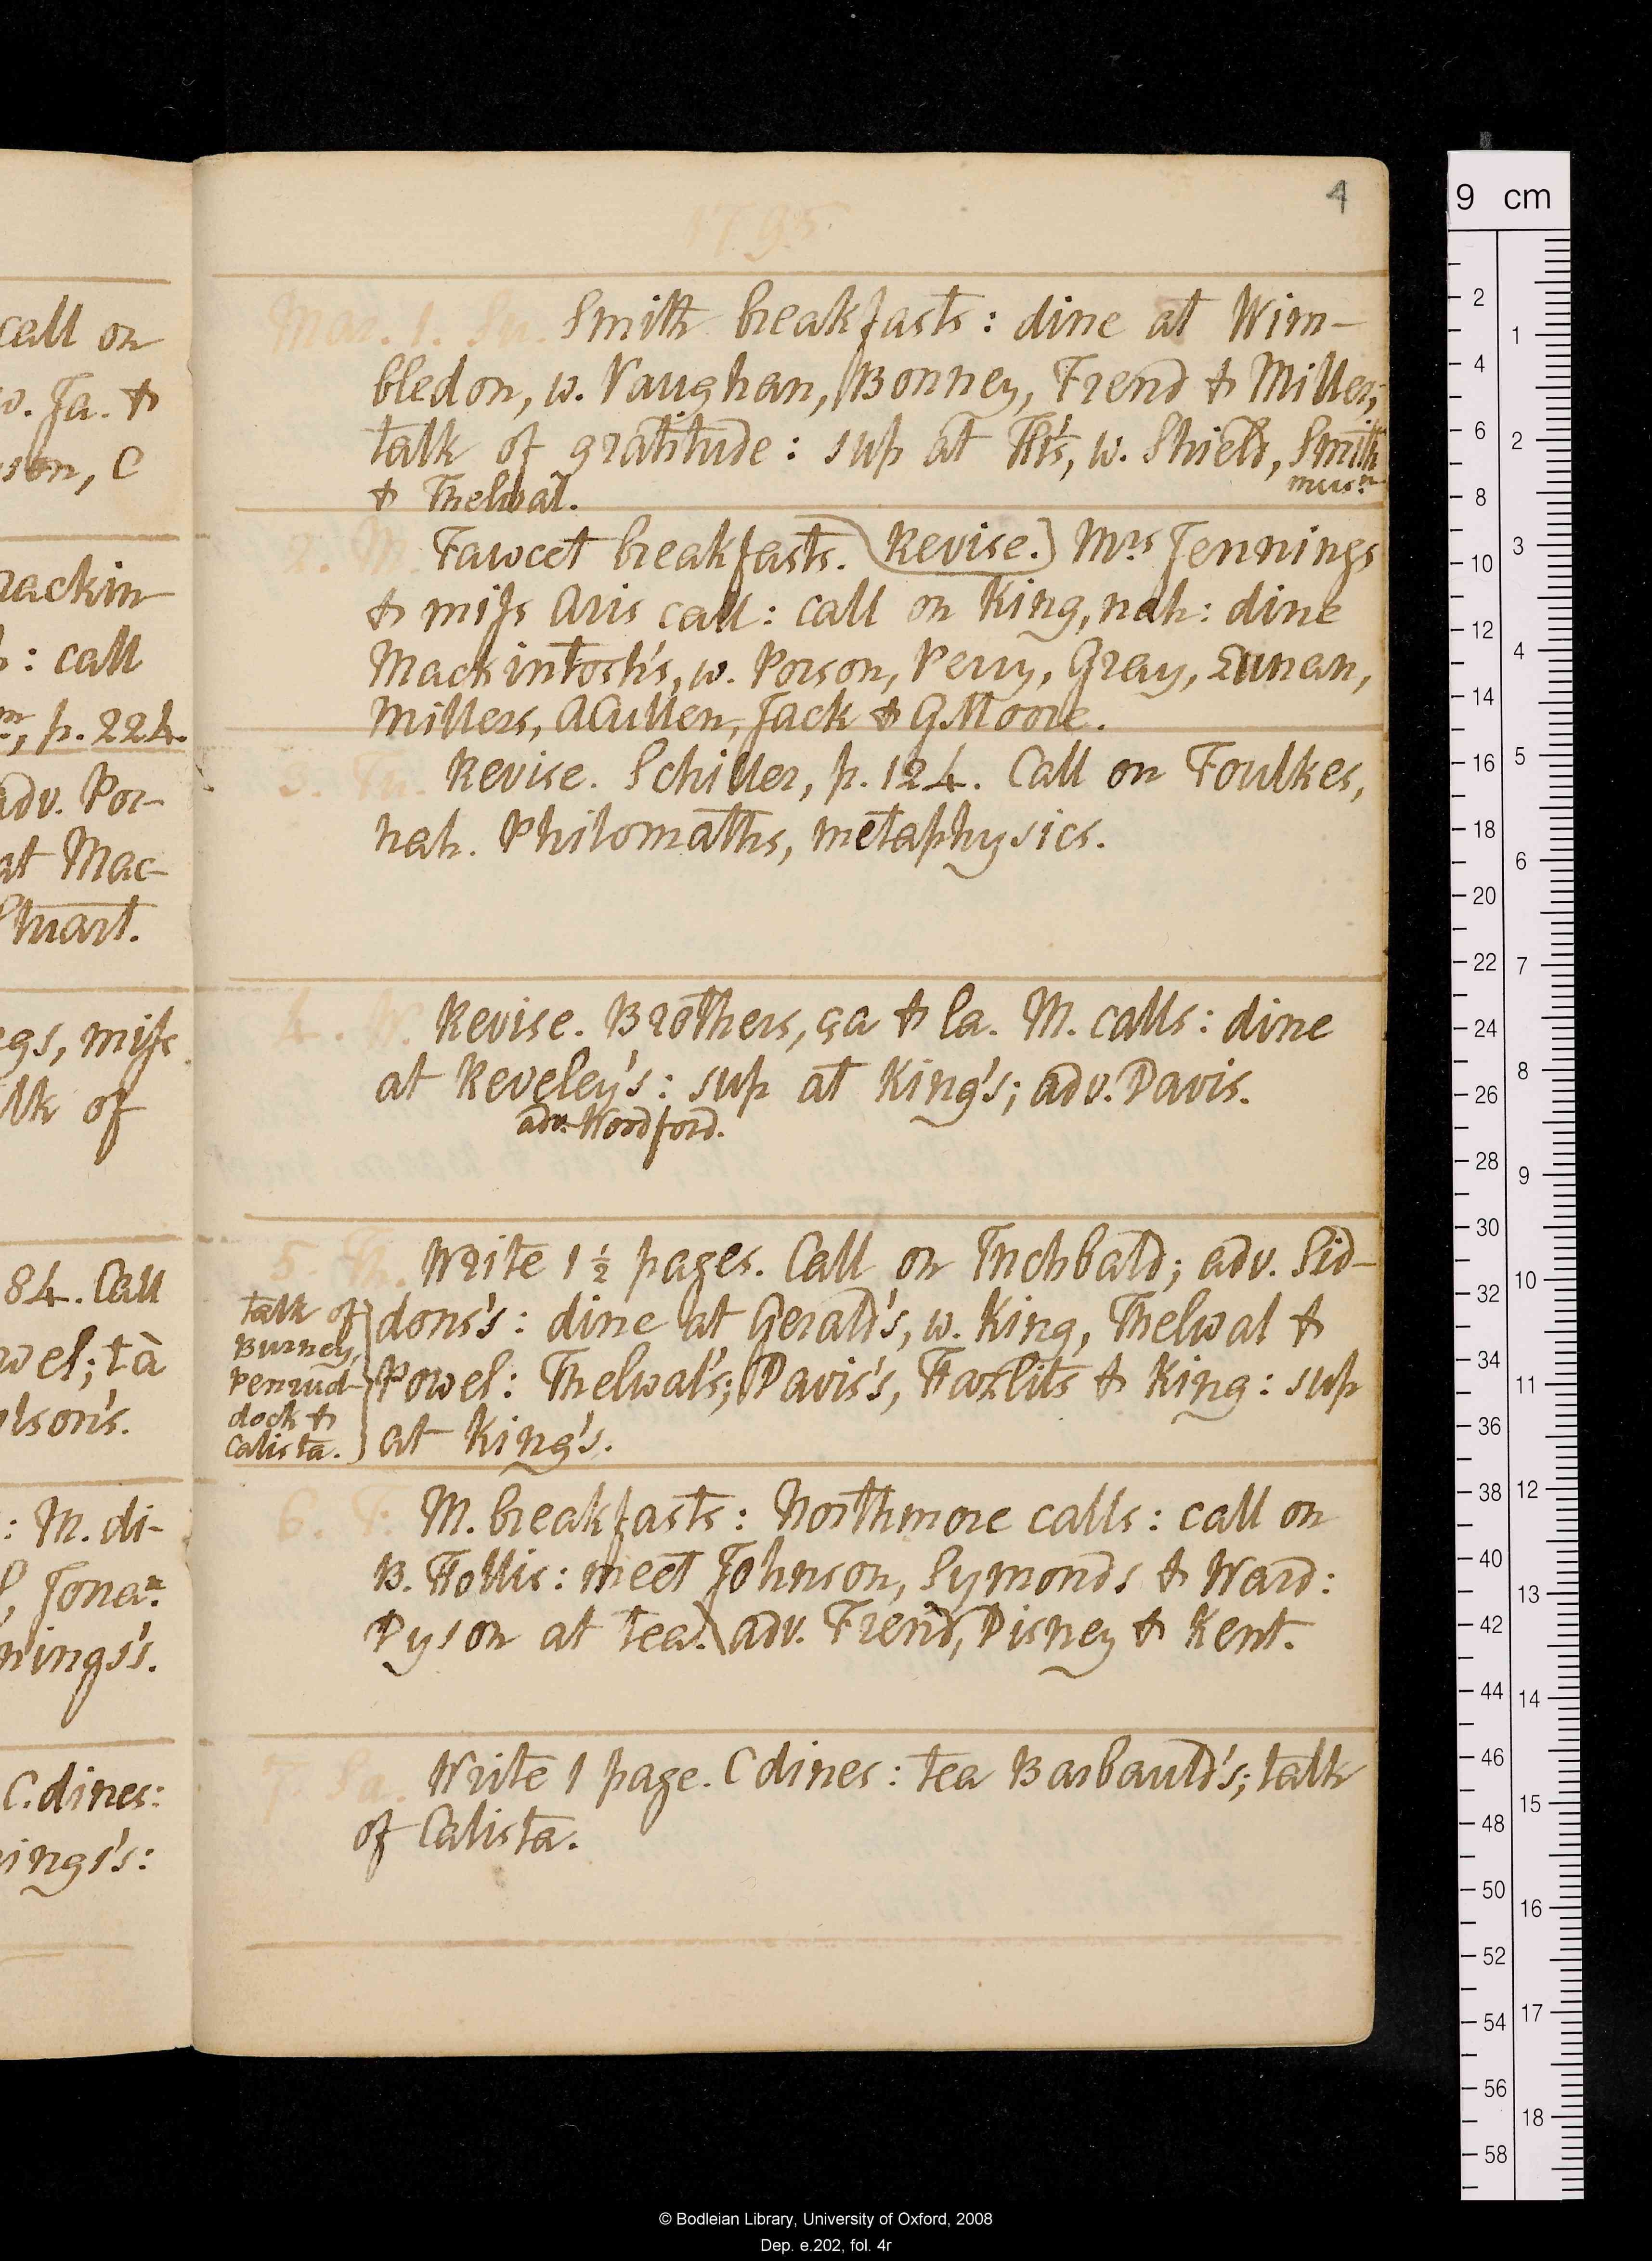 call on
w. Ja. &
son, C
rackin
: call
p. 224.
adv. Por-
at Mac-
Stuart.
gs, miss
lk of
84. Call
wel; tà
lson's.
: M. di-
Jonan.
nings's.
C. dines:
ings's:
4
1795
Mar. 1. Su. Smith breakfasts: dine at Wim-
bledon, w. Vaughan, Bonney, Frend & Miller;
talk of gratitude: sup at Ht's, w. Shield, Smith
musn
& Thelwal.
2. M. Fawcet breakfasts. Revise. Mrs Jennings
& miss Avis call: call on King, nah: dine
Mackintosh's, w. Porson, Perry, Gray, Dunan,
Millers, ACullen, Jack & GMoore.
3. Tu. Revise. Schiller, p. 124. Call on Foulkes,
nah. Philomaths, metaphysics.
4. W. Revise. Brothers, ça & la. M. calls: dine
at Reveley's: sup at King's; adv. Davis.
adv. Woodford.
5. Th. Write 1 ½ pages. Call on Inchbald; adv. Sid-
dons's: dine at Gerald's, w. King, Thelwal &
Powel: Thelwal's; Davis's, Hazlits & King: sup
at King's.
talk of
Burney,
Penrud-
dock &
Calista.
6. F. M. breakfasts: Northmore calls: call on
B. Hollis: meet Johnson, Symonds & Ward:
Dyson at tea. adv. Frend, Disney & Kent.
7. Sa. Write 1 page. C dines: tea Barbauld's; talk
of Calista.
9 cm
2
4
6
8
10
12
14
16
18
20
22
24
26
28
30
32
34
36
38
40
42
44
46
48
50
52
54
56
58
1
2
3
4
5
6
7
8
9
10
11
12
13
14
15
16
17
18
© Bodleian Library, University of Oxford, 2008
Dep. e.202, fol. 4r